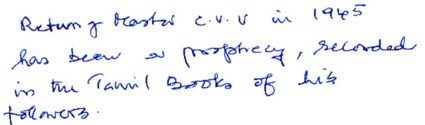 Return of Master C.V.V in 1945
has been a prophecy, recorded
in the Tamil Books of his
followers.